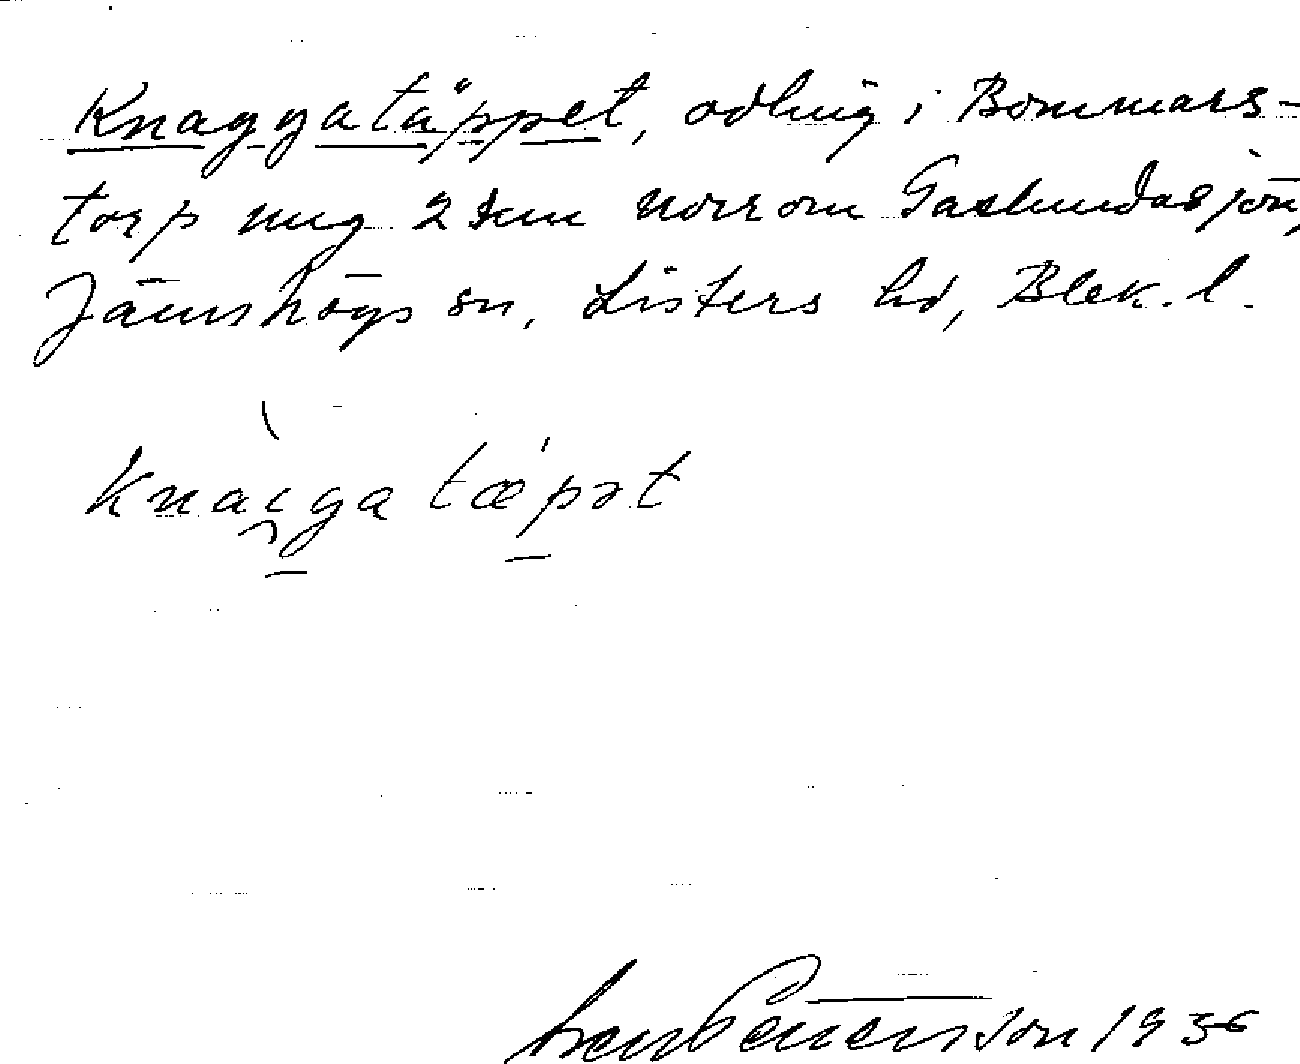 Knaggatäppet, odling i Bommars-
torp mg 2 km norr om Gaslundasjön,
Jämshögs sn, Listers hd, Blek. l.
knaiga tæpət
Sven Benson 1936